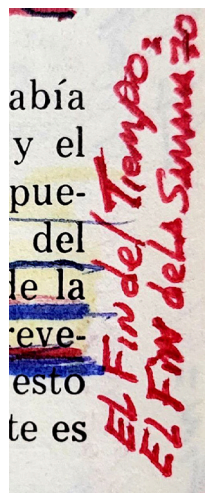 abía
y el
pue-
del
de la
reve-
esto
te es
EL Fin del Tiempo,
EL Fin de la